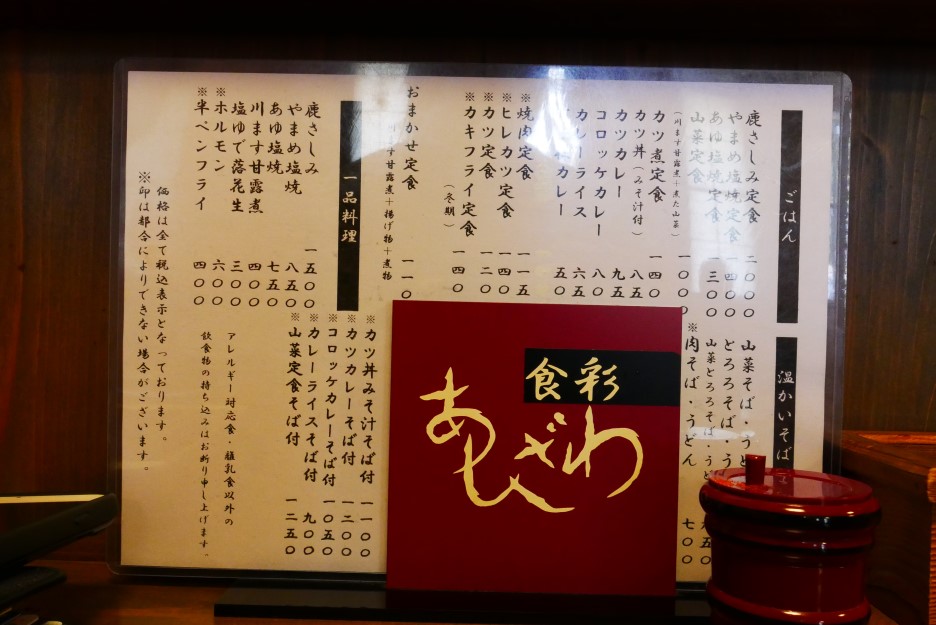 ごはん
鹿さしみ定食 二〇〇〇
やまめ塩焼定食 一四〇〇
あゆ塩焼定食 一三〇〇
山菜定食 一〇〇〇
(川ます甘露煮+煮た山菜)
カツ煮定食 一四〇
カツ丼(みそ汁付) 八五
カツカレー 九五
コロッケカレー 八〇
カレーライス 六五
カレー 五〇
※焼肉定食 一一五
※ヒレカツ定食 一四〇
※カツ定食 一二〇
※カキフライ定食 一四〇
(冬期)
おまかせ定食 一一〇
ます甘露煮+揚げ物+煮物
一品料理
鹿さしみ 一五〇〇
やまめ塩焼 八五〇
あゆ塩焼 七五〇
川ます甘露煮 四〇〇
塩ゆで落花生 三〇〇
※ホルモン 六〇〇
※半ペンフライ 四〇〇
価格は全て税込表示となっております。
※印は都合によりできない場合がございます。
温かいそば
山菜そば・う
とろろそば・う
山菜とろろそば・うど
※肉そば・うどん 七〇〇
※カツ丼みそ汁そば付 一一〇〇
※カツカレーそば付 一二〇〇
※コロッケカレーそば付 一〇五〇
※カレーライスそば付 九〇〇
※山菜定食そば付 一二五〇
アレルギー対応食・離乳食以外の
飲食物の持ち込みはお断り申し上げます。
食彩
あしざわ